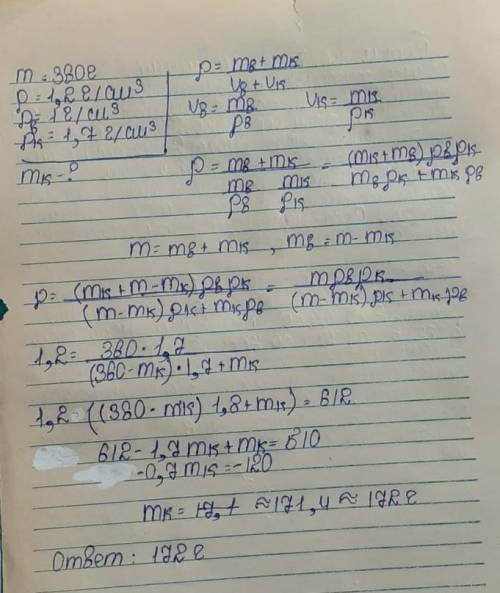 m = 360г
ρ = 1,2 г/см³
ρв = 1 г/см³
ρк = 1,7 г/см³
mк - ?
ρ = (mв + mк)/(vв + vк)
vв = mв/ρв   vк = mк/ρк
ρ = (mв + mк)/(mв/ρв  mк/ρк) = (mк + mв) ρв ρк/(mв ρк + mк ρв)
m = mв + mк , mв = m - mк
ρ = (mк + m - mк) ρв ρк/((m - mк) ρк + mк ρв) = m ρв ρк/((m - mк) ρк + mк ρв)
1,2 = 360 · 1,7/((360 - mк) · 1,7 + mк)
1,2 · ((360 · mк) 1,8 + mк) = 612
612 - 1,7 mк + mк = 510
-0,7 mк = -120
mк = ≈ 171,4 ≈ 172г
Ответ: 172г